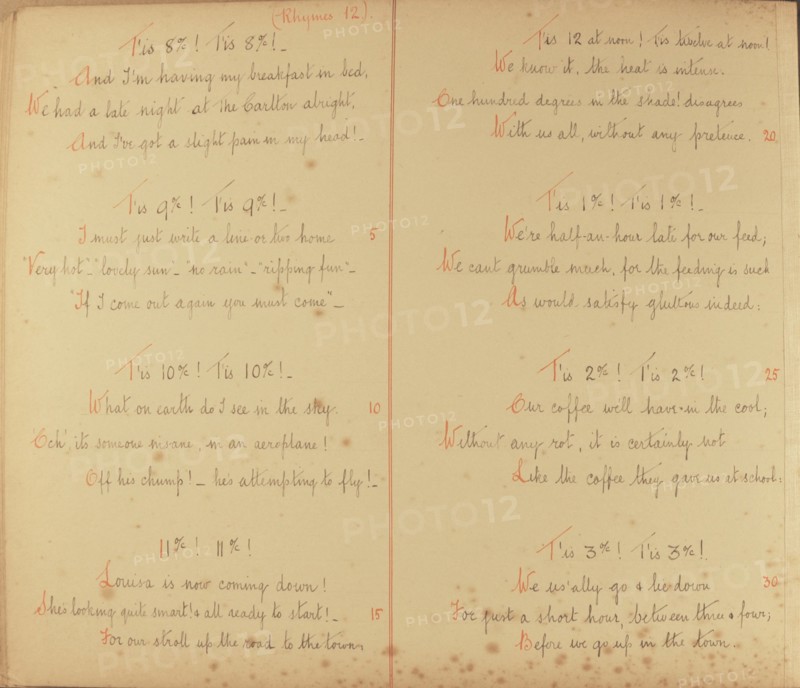 (Rhymes 12).
T'is 8%! T'is 8%!_
And I'm having my breakfast in bed,
We had a late night at the Carlton alright,
And I've got a slight pain in my head!_
T'is 9%! T'is 9%!_
I must just write a line or two home 5
"Very hot"_"lovely sun"_"no rain"_"ripping fun"_
"If I come out again you must come"_
T'is 10%! T'is 10%!_
What on earth do I see in the sky. 10
'Och', its someone insane, in an aeroplane!
Off his chump!_ he's attempting to fly!_
11%! 11%!
Louisa is now coming down!
She's looking quite smart! & all ready to start!_ 15
For our stroll up the road to the town,
T'is 12 at noon! T'is twelve at noon!
We know it, the heat is intense.
One hundred degrees in the shade! disagrees
With us all, without any pretence. 20
T'is 1%! T'is 1%!_
We're half-an-hour late for our feed;
We cant grumble much, for the feeding is such
As would satisfy gluttons indeed:
T'is 2%! T'is 2%! 25
Our coffee we'll have in the cool;
Without any rot, it is certainly not
Like the coffee they gave us at school:
T'is 3%! T'is 3%!
We us'ally go & lie down 30
For just a short hour, between three & four;
Before we go up in the town.
PHOTO12